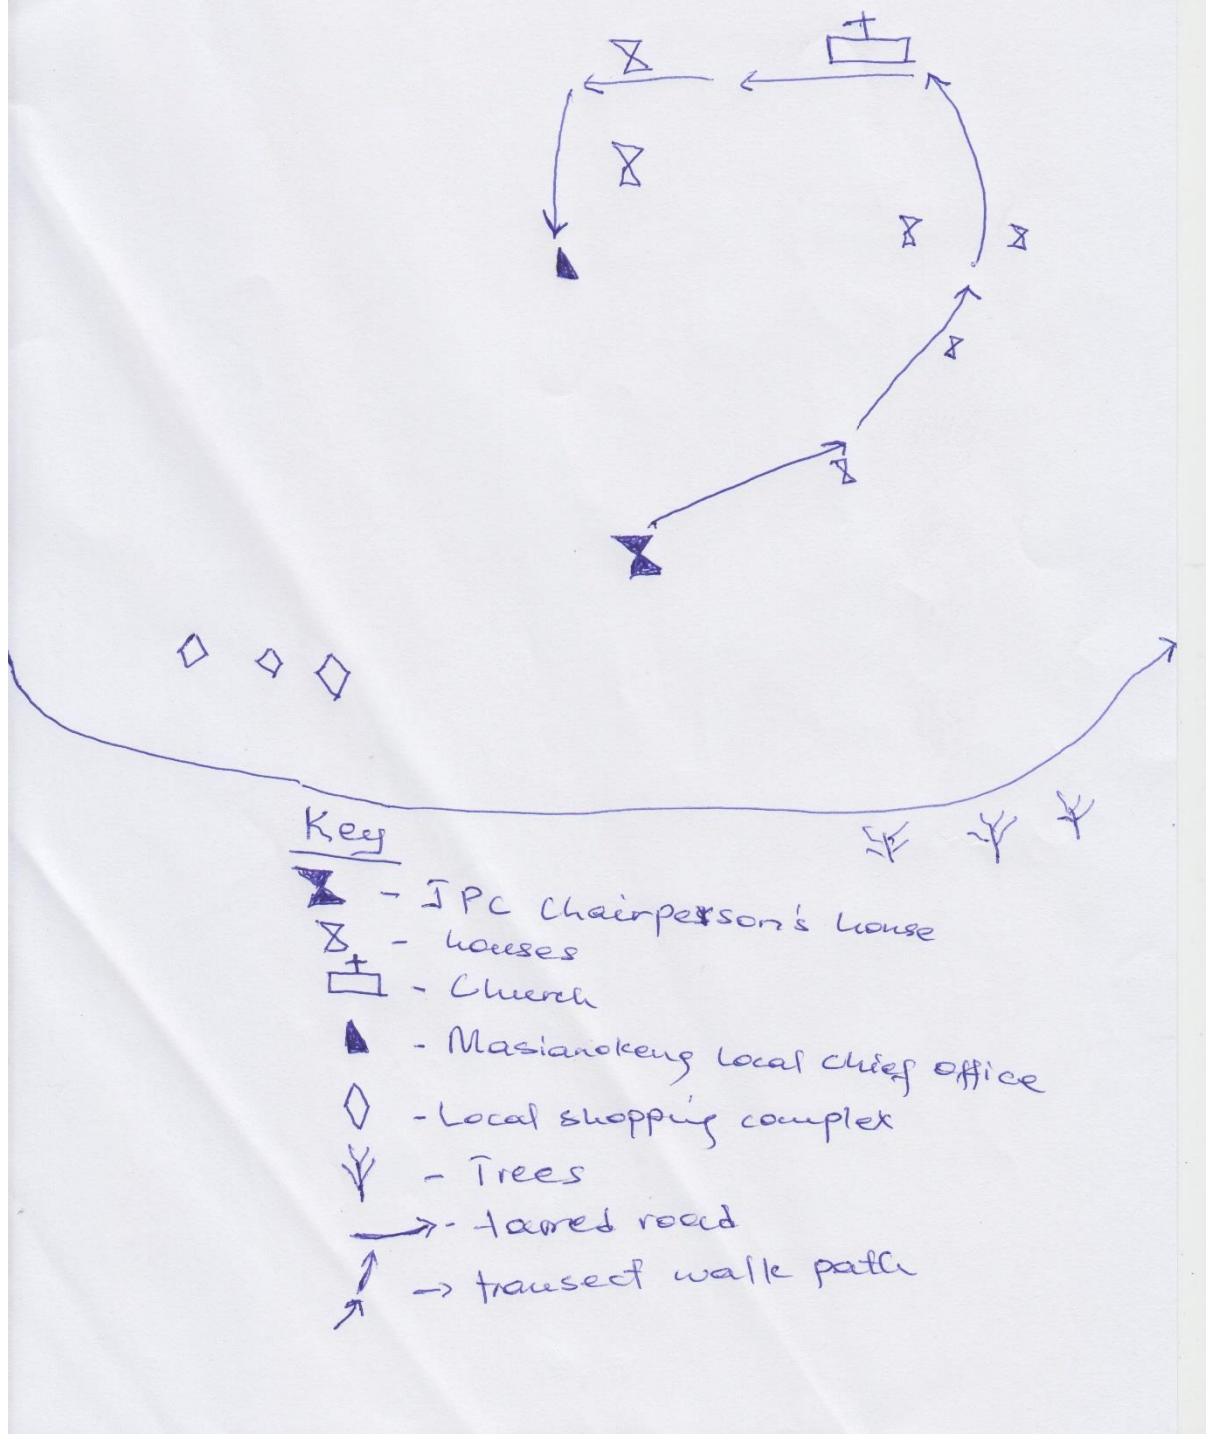 Key
- JPC Chairperson's house
- houses
- Church
- Masianokeng Local chief office
- Local shopping complex
- Trees
- tarred road
→ transect walk path